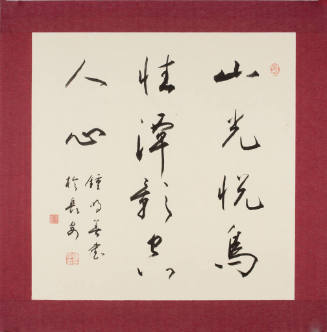 山光悦鳥
性潭影空
人心
鍾明善書
於長安